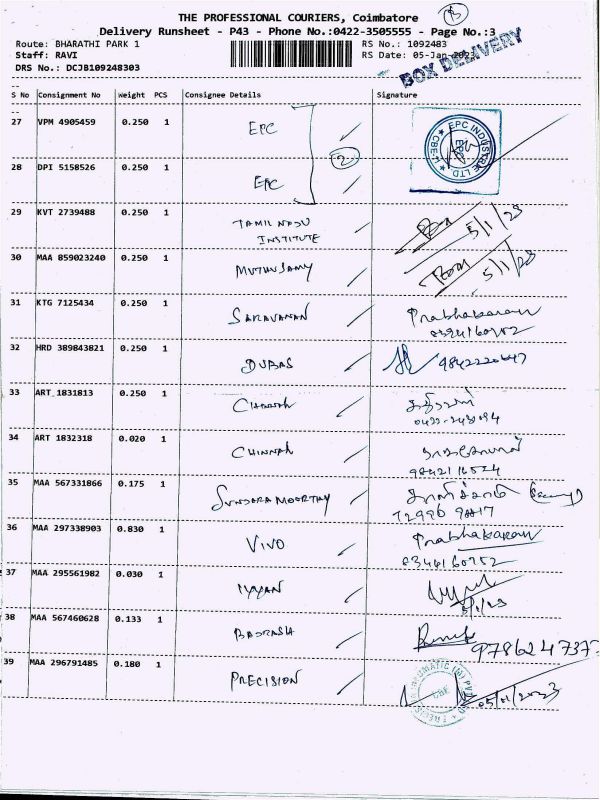 THE PROFESSIONAL COURIERS, Coimbatore
Delivery Runsheet - P43 - Phone No.:0422-3505555 - Page No.:3
Route: BHARATHI PARK 1
RS No.: 1092483
Staff: RAVI
RS Date: 05-Jan-2023
DRS No.: DCJB109248303
BOX DELIVERY
S No Consignment No Weight PCS Consignee Details Signature
27 VPM 4905459 0.250 1 EPC
EPC INDUSTRIE LTD
2
28 DPI 5158526 0.250 1 EPC
29 KVT 2739488 0.250 1 TAMILNADU
INSTITUTE
5/1/23
30 MAA 859023240 0.250 1 MUTHUSAMY
5/1/23
31 KTG 7125434 0.250 1 SARAVANAN Prabhakaran
32 HRD 389843821 0.250 1 DUBAS
33 ART 1831813 0.250 1
34 ART 1832318 0.020 1 CHINNAH
35 MAA 567331866 0.175 1 SUNDARA MOORTHY
36 MAA 297338903 0.830 1 VIVO Prabhakaran
37 MAA 295561982 0.030 1 IYYAN
5/1/23
38 MAA 567460628 0.133 1
978624737
39 MAA 296791485 0.180 1 PRECISION
CBE
05/01/2023